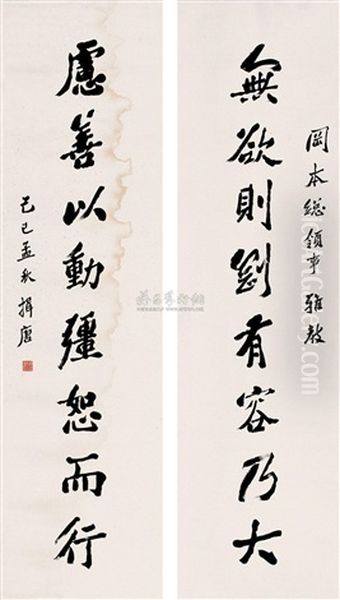 岡本總領事雅教
無欲則剛有容乃大
慮善以動彊恕而行
己巳孟秋揖唐